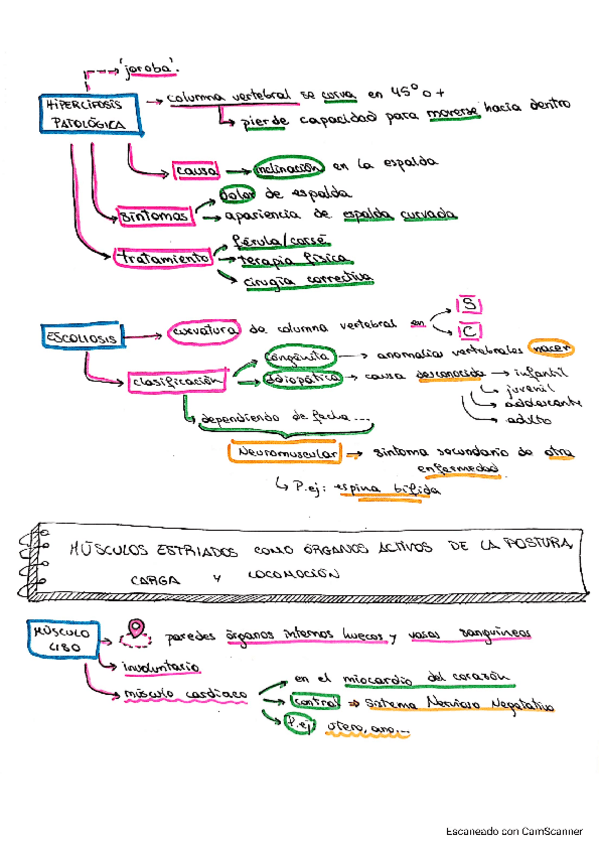 'joroba'.
HIPERCIFOSIS PATOLÓGICA → columna vertebral se curva en 45° o +
→ pierde capacidad para moverse hacia dentro
causa → inclinación en la espalda
síntomas → dolor de espalda
→ apariencia de espalda curvada
tratamiento → férula/corsé
→ terapia física
→ cirugía correctiva
ESCOLIOSIS → curvatura de columna vertebral en S
C
clasificación → congénita → anomalías vertebrales nacer
→ idiopática → causa desconocida → infantil
juvenil
adolescente
adulto
dependiendo de fecha...
Neuromuscular → síntoma secundario de otra
enfermedad
↳ P.ej: espina bífida
MÚSCULOS ESTRIADOS COMO ÓRGANOS ACTIVOS DE LA POSTURA,
CARGA Y LOCOMOCIÓN
MÚSCULO LISO → paredes órganos internos huecos y vasos sanguíneos
→ involuntario
→ músculo cardíaco → en el miocardio del corazón
→ control → Sistema Nervioso Vegetativo
→ P.ej útero, ano...
Escaneado con CamScanner